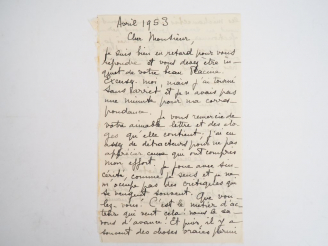 Avril 1953
Cher Monsieur,
Je suis bien en retard pour vous
répondre et vous devez être in-
quiet de votre beau
Excusez moi, mais j'ai tourné
sans arrêt et je n'avais pas
une minute pour ma corres-
pondance.
Je vous remercie de
votre aimable lettre et des élo-
ges qu'elle contient. J'ai eu
assez de détracteurs pour ne pas
apprécier ceux qui ont compris
mon effort. Je joue avec sin-
cérité, comme je sens et je ne
m'occupe pas des critiques qui
se vengent souvent. Que vou-
lez-vous ! C'est le métier d'ac-
teur qui veut cela: nous le sa-
vons d'avance! Et puis il y a
souvent des choses vraies parmi